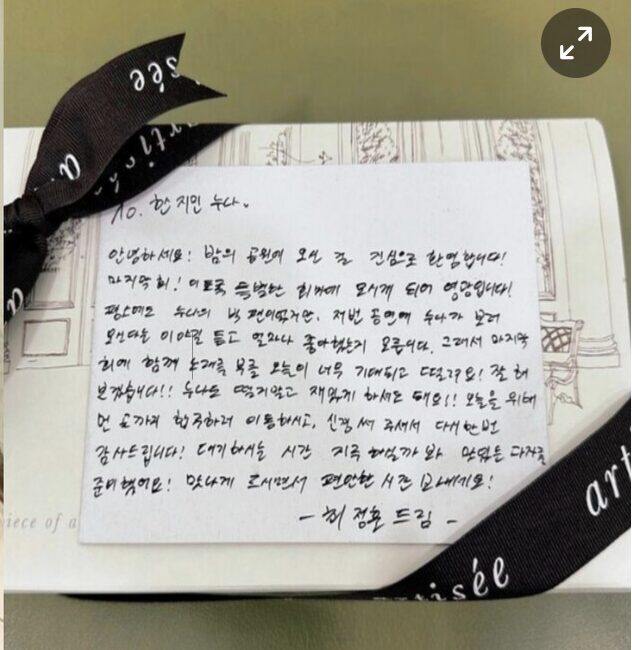 sée
artisé
a
To. 한지민 누나.
안녕하세요! 밤의 공원에 오신 걸 진심으로 환영합니다!
마지막 회! 이토록 특별한 회차에 모시게 되어 영광입니다!
평소에도 누나의 빅 팬이었지만, 저번 공연에 누나가 보러
오신다는 이야길 듣고 얼마나 좋아했는지 모릅니다. 그래서 마지막
회에 함께 노래를 부를 오늘이 너무 기대되고 떨려요! 잘 해
보겠습니다!! 누나도 떨지말고 재밌게 하셔도 돼요!! 오늘을 위해
먼 곳까지 합주하러 이동하시고, 신경 써 주셔서 다시 한번
감사드립니다! 대기하시는 시간 지루하실까 봐 맛있는 다과를
준비했어요! 맛나게 드시면서 편안한 시간 보내세요!
- 최정훈 드림 -
piece of a
art
artisée